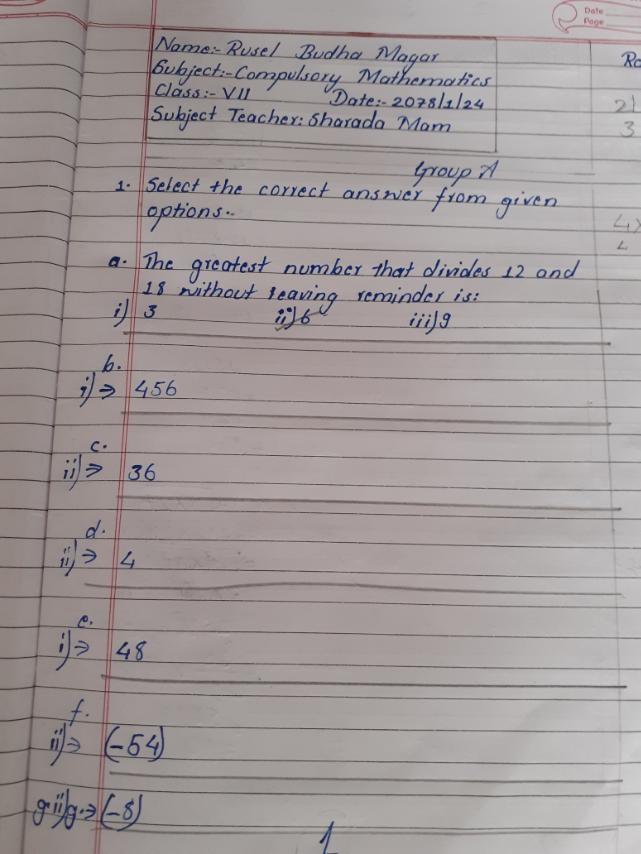 Date
Page
Name:- Rusel Budha Magar
Subject:- Compulsory Mathematics
Class:- VII Date:- 2078/1/24
Subject Teacher: Sharada Mam
Group A
1. Select the correct answer from given
options..
a. The greatest number that divides 12 and
18 without leaving reminder is:
i) 3 ii) 6 iii) 9
b.
i) ⇒ 456
c.
ii) ⇒ 36
d.
ii) ⇒ 4
e.
i) ⇒ 48
f.
ii) ⇒ (-54)
g ii) g. ⇒ (-8)
1
Ro
2)
3
4